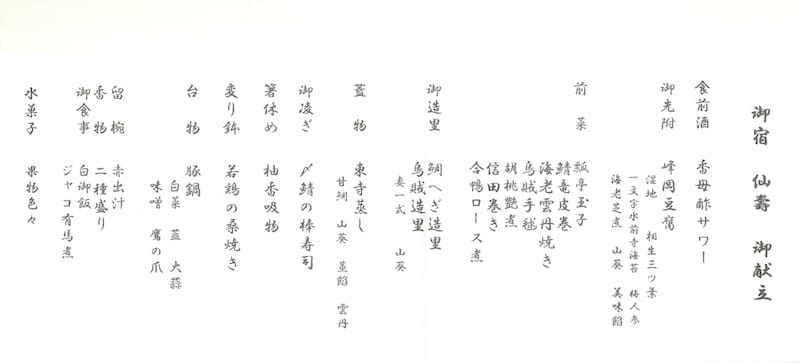 御宿 仙壽 御献立
食前酒 香母酢サワー
御先附 峰岡豆腐
湿地 相生三ツ葉
一文字水前寺海苔 梅人参
海老芝煮 山葵 美味餡
前菜 瓢亭玉子
鯖竜皮巻
海老雲丹焼き
烏賊手毬
胡桃艶煮
信田巻き
合鴨ロース煮
御造里 鯛へぎ造里
烏賊造里
妻一式 山葵
蓋物 東寺蒸し
甘鯛 山葵 茎餡 雲丹
御凌ぎ 〆鯖の棒寿司
箸休め 柚香吸物
変り鉢 若鶏の桑焼き
台物 豚鍋
白菜 韮 大蒜
味噌 鷹の爪
留椀 赤出汁
香物 二種盛り
御食事 白御飯
ジャコ有馬煮
水菓子 果物色々